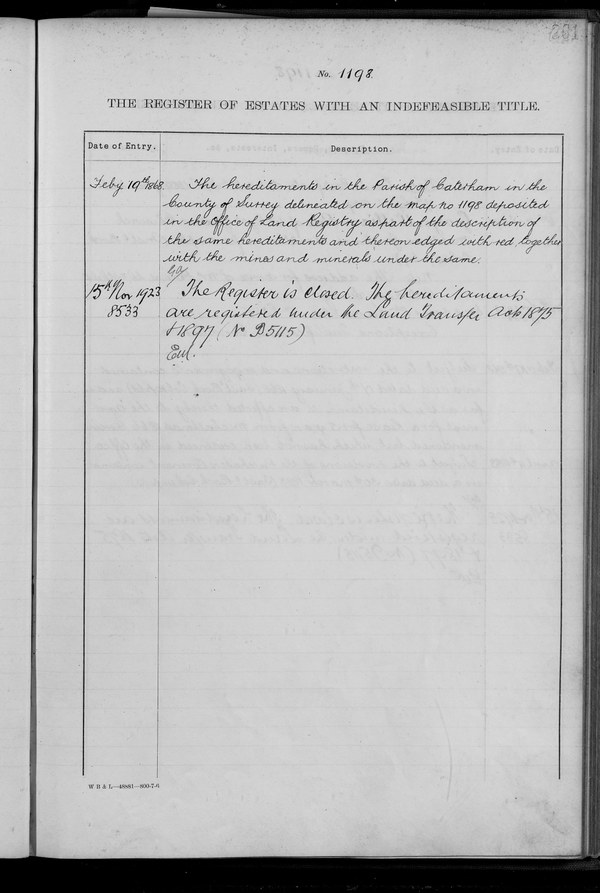 201
No. 1198.
THE REGISTER OF ESTATES WITH AN INDEFEASIBLE TITLE.
Date of Entry.
Description.
Feby 19th 1868.
The hereditaments in the Parish of Caterham in the
County of Surrey delineated on the map no 1198 deposited
in the Office of Land Registry as part of the description of
the same hereditaments and thereon edged with red, together
with the mines and minerals under the same.
15th Nov 1923
8533
The Register is closed. The hereditaments
are registered under the Land Transfer Acts 1875
& 1897 (No D5115)
W B & L—48881—800-7-6